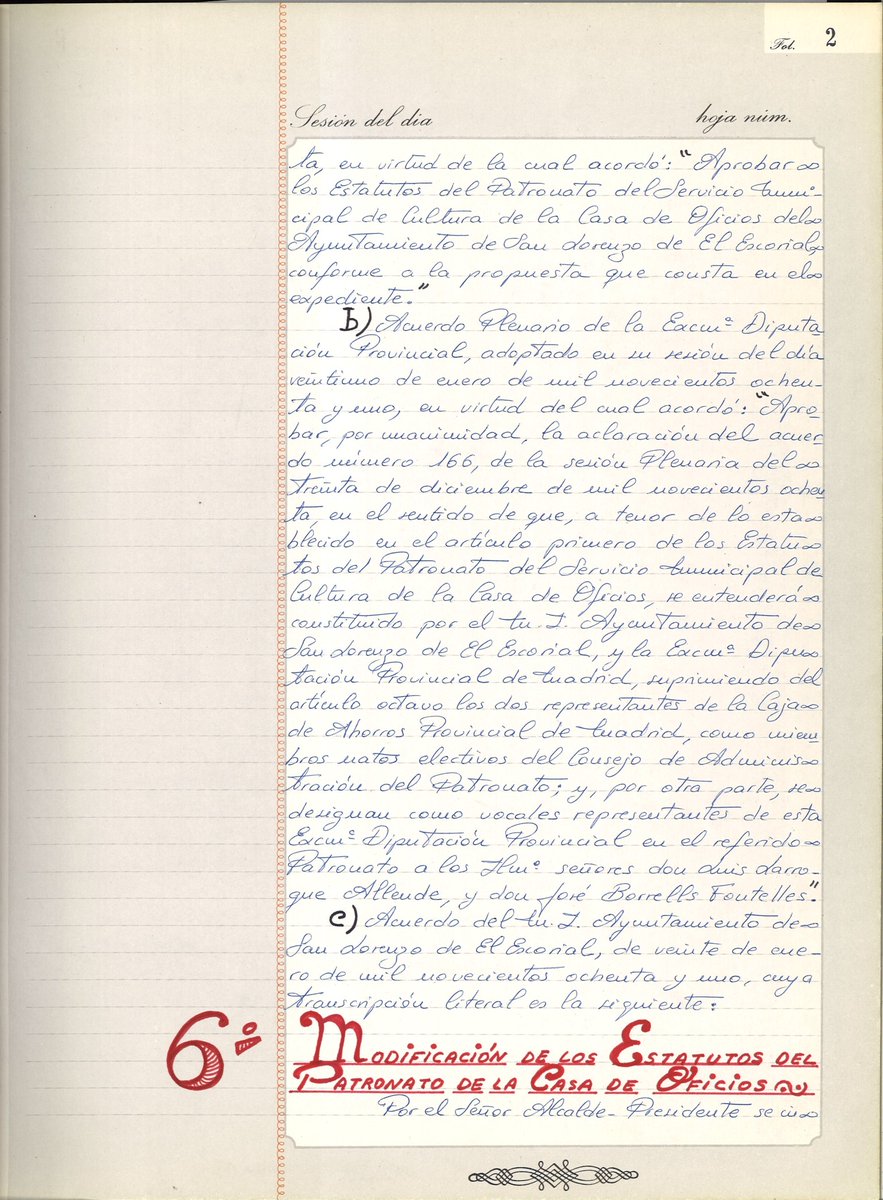 Fol. 2
Sesión del dia hoja núm.
ta, en virtud de la cual acordó: "Aprobar
los Estatutos del Patronato del Servicio Muni-
cipal de Cultura de la Casa de Oficios del
Ayuntamiento de San Lorenzo de El Escorial,
conforme a la propuesta que consta en el
expediente."
b) Acuerdo Plenario de la Excmª Diputa-
ción Provincial, adoptado en su sesión del día
veintiuno de enero de mil novecientos ochen-
ta y uno, en virtud del cual acordó: "Apro-
bar, por unanimidad, la aclaración del acuer-
do número 166, de la sesión Plenaria del
treinta de diciembre de mil novecientos ochen-
ta, en el sentido de que, a tenor de lo esta
blecido en el artículo primero de los Estatu
tos del Patronato del Servicio Municipal de
Cultura de la Casa de Oficios, se entenderá
constituido por el M. I. Ayuntamiento de
San Lorenzo de El Escorial, y la Excmª Dipu
tación Provincial de Madrid, suprimiendo del
artículo octavo los dos representantes de la Caja
de Ahorros Provincial de Madrid, como miem
bros natos electivos del Consejo de Adminis
tración del Patronato; y, por otra parte, se
designan como vocales representantes de esta
Excmª Diputación Provincial en el referido
Patronato a los Ilmº señores don Luis Larro-
que Allende, y don José Borrells Fontelles."
c) Acuerdo del M. I. Ayuntamiento de
San Lorenzo de El Escorial, de veinte de ene-
ro de mil novecientos ochenta y uno, cuya
transcripción literal es la siguiente:
6º Modificación de los Estatutos del
Patronato de la Casa de Oficios
Por el Señor Alcalde-Presidente se in